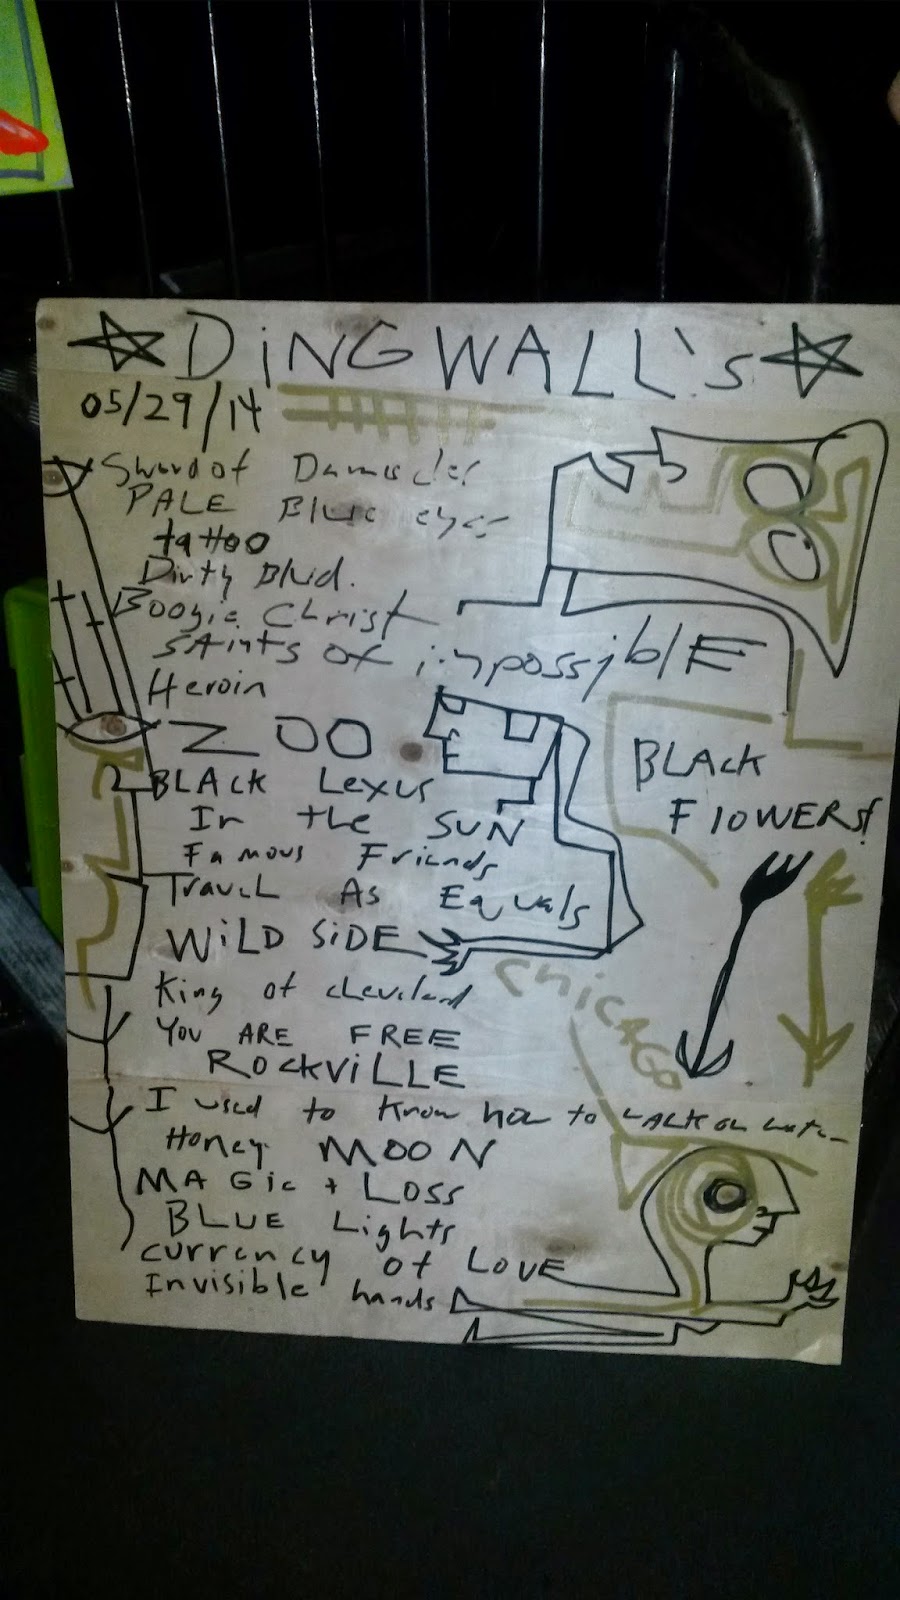 DiNGWALL'S
05/29/14
Sword of Damocles
PALE Blue eyes
tattoo
Dirty Blvd.
Boogie Christ
saints of impossiblE
Heroin
ZOO
BLACK Lexus
In the SUN
Famous Friends
Travel As Equals
WiLD SiDE
King of cleveland
YOU ARE FREE
ROCKViLLE
I used to know how to WALK on water
Honey MOON
MAGic + LOSS
BLUE Lights
currency of LOVE
Invisible hands
BLACK
FlOWERS!
CHiCAGO